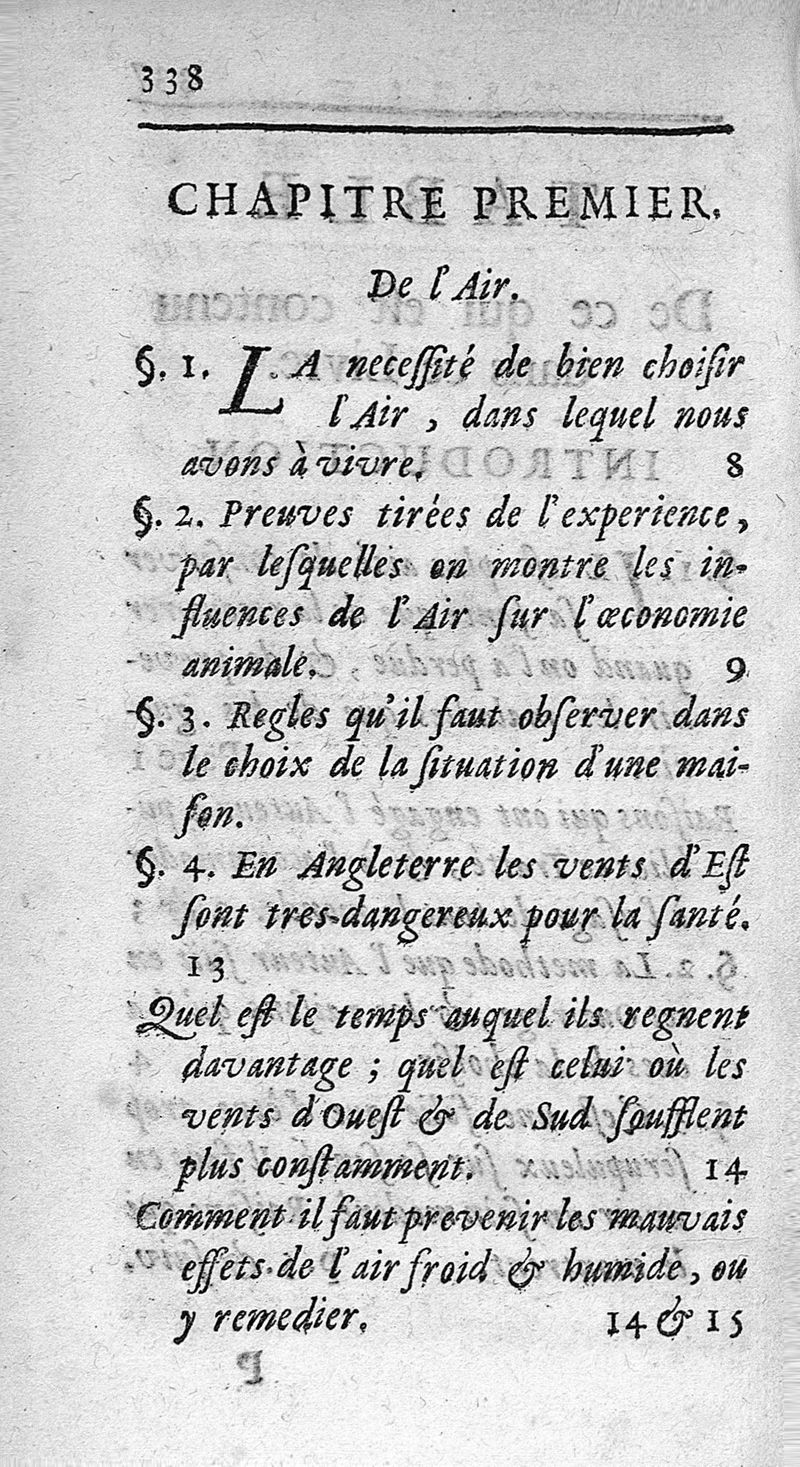 338
CHAPITRE PREMIER.
De l'Air.
§. 1. LA neceſſité de bien choiſir
l'Air, dans lequel nous
avons à vivre. 8
§. 2. Preuves tirées de l'experience,
par leſquelles on montre les in-
fluences de l'Air ſur l'œconomie
animale. 9
§. 3. Regles qu'il faut obſerver dans
le choix de la ſituation d'une mai-
ſon.
§. 4. En Angleterre les vents d'Eſt
ſont tres-dangereux pour la ſanté.
13
Quel eſt le temps auquel ils regnent
davantage ; quel eſt celui où les
vents d'Oueſt & de Sud ſoufflent
plus conſtamment. 14
Comment il faut prevenir les mauvais
effets de l'air froid & humide, ou
y remedier. 14 & 15